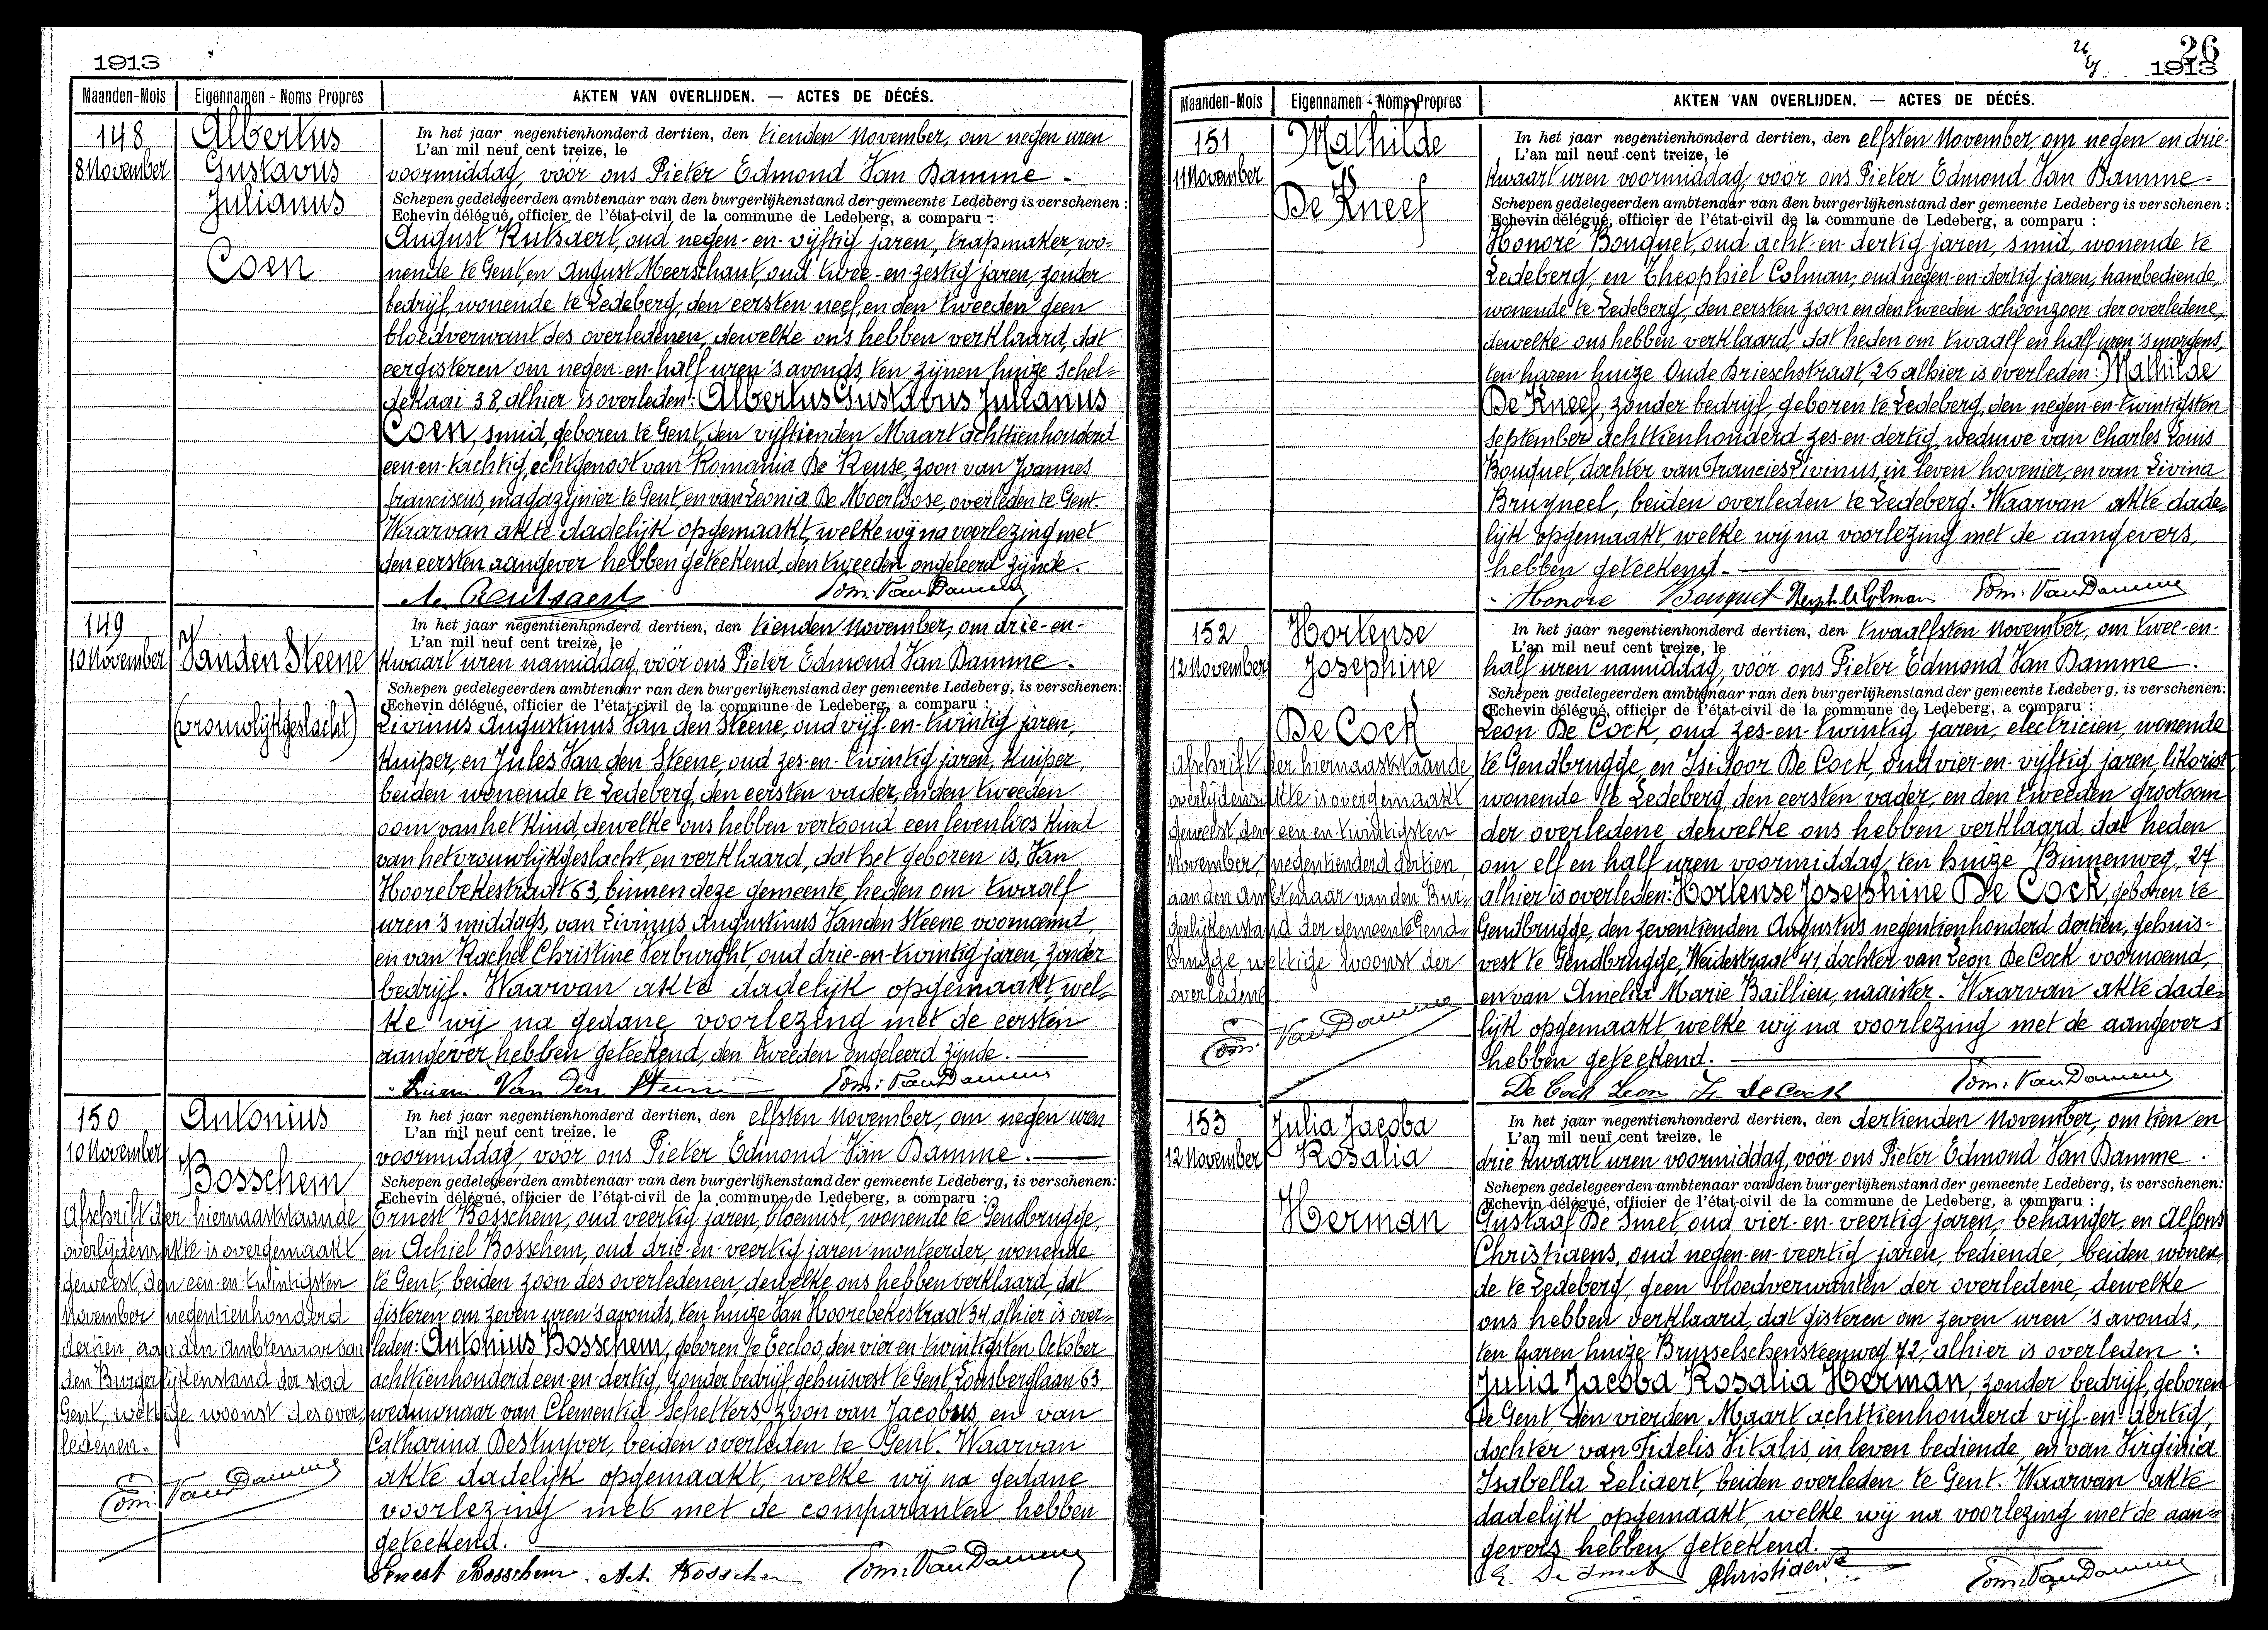 1913
Maanden-Mois Eigennamen - Noms Propres AKTEN VAN OVERLIJDEN. — ACTES DE DÉCÉS.
148
8 November
Albertus
Gustavus
Julianus
Coen
In het jaar negentienhonderd dertien, den tienden November, om negen uren
L'an mil neuf cent treize, le
voormiddag, vóór ons Pieter Edmond Van Damme -
Schepen gedelegeerden ambtenaar van den burgerlijkenstand der gemeente Ledeberg is verschenen :
Echevin délégué, officier de l'état-civil de la commune de Ledeberg, a comparu :
August Rutsaert, oud negen-en-vijftig jaren, trapmaker, wo=
nende te Gent, en August Meerschaut, oud twee-en-zestig jaren, zonder
bedrijf, wonende te Ledeberg, den eersten neef, en den tweeden geen
bloedverwant des overledenen, dewelke ons hebben verklaard, dat
eergisteren om negen-en-half uren 's avonds, ten zijnen huize Schel=
dekaai 38, alhier is overleden: Albertus Gustavus Julianus
Coen, smid, geboren te Gent, den vijftienden Maart achttienhonderd
een-en-tachtig, echtgenoot van Romania De Keuse, zoon van Joannes
franciscus, magazijnier te Gent, en van Leonia De Moerloose, overleden te Gent.
Waarvan akte dadelijk opgemaakt, welke wij na voorlezing met
den eersten aangever hebben geteekend, den tweeden ongeleerd zijnde.
A. Rutsaert Edm. Van Damme
149
10 November
Vanden Steene
(vrouwlijkgeslacht)
In het jaar negentienhonderd dertien, den tienden November, om drie-en-
L'an mil neuf cent treize, le
kwaart uren namiddag, vóór ons Pieter Edmond Van Damme.
Schepen gedelegeerden ambtenaar van den burgerlijkenstand der gemeente Ledeberg, is verschenen:
Echevin délégué, officier de l'état-civil de la commune de Ledeberg, a comparu :
Livinus Augustinus Van den Steene, oud vijf-en-twintig jaren,
kuiper, en Jules Van den Steene, oud zes-en-twintig jaren, kuiper,
beiden wonende te Ledeberg, den eersten vader, en den tweeden
oom van het kind, dewelke ons hebben vertoond een levenloos kind
van het vrouwlijkgeslacht, en verklaard, dat het geboren is, Van
Hoorebekestraat 63, binnen deze gemeente, heden om twaalf
uren 's middags, van Livinus Augustinus Vanden Steene voornoemd,
en van Rachel Christine Verburght, oud drie-en-twintig jaren, zonder
bedrijf. Waarvan akte dadelijk opgemaakt, wel=
ke wij na gedane voorlezing met de eersten
aangever hebben geteekend, den tweeden ongeleerd zijnde.
Van Den Edm. Van Damme
150
10 November
Antonius
Bosschem
Afschrift der hiernaaststaande
overlijdensakte is overgemaakt
geweest, den een-en-twintigsten
November negentienhonderd
dertien, aan den ambtenaar van
den Burgerlijkenstand der stad
Gent, wettige woonst des over=
ledenen.
Edm. Van Damme
In het jaar negentienhonderd dertien, den elfsten November, om negen uren
L'an mil neuf cent treize, le
voormiddag, vóór ons Pieter Edmond Van Damme.
Schepen gedelegeerden ambtenaar van den burgerlijkenstand der gemeente Ledeberg, is verschenen:
Echevin délégué, officier de l'état-civil de la commune de Ledeberg, a comparu :
Ernest Bosschem, oud veertig jaren, bloemist, wonende te Gendbrugge,
en Achiel Bosschem, oud drie-en-veertig jaren monteerder, wonende
te Gent, beiden zoon des overledenen, dewelke ons hebben verklaard, dat
gisteren om zeven uren 's avonds, ten huize Van Hoorebekestraat 34, alhier is over=
leden: Antonius Bosschem, geboren te Eecloo, den vier-en-twintigsten October
achttienhonderd een-en-dertig, zonder bedrijf, gehuisvest te Gent Lousberglaan 63,
weduwnaar van Clementia Schelters, zoon van Jacobus, en van
Catharina Destuyver, beiden overleden te Gent. Waarvan
akte dadelijk opgemaakt, welke wij na gedane
voorlezing met met de comparanten hebben
geteekend.
Ernest Bosschem. Achi Bosschem Edm. Van Damme
26
1913
Maanden-Mois Eigennamen - Noms Propres AKTEN VAN OVERLIJDEN. — ACTES DE DÉCÉS.
151
11 November
Mathilde
De Kneef
In het jaar negentienhonderd dertien, den elfsten November, om negen en drie-
L'an mil neuf cent treize, le
kwaart uren voormiddag, vóór ons Pieter Edmond Van Damme-
Schepen gedelegeerden ambtenaar van den burgerlijkenstand der gemeente Ledeberg is verschenen :
Echevin délégué, officier de l'état-civil de la commune de Ledeberg, a comparu :
Honoré Bouquet, oud acht-en-dertig jaren, smid, wonende te
Ledeberg, en Theophiel Colman, oud negen-en-dertig jaren, trambediende,
wonende te Ledeberg, den eersten zoon en den tweeden schoonzoon der overledene,
dewelke ons hebben verklaard, dat heden om twaalf en half uren 's morgens,
ten haren huize Oude Brieschstraat, 26 alhier is overleden: Mathilde
De Kneef, zonder bedrijf, geboren te Ledeberg, den negen-en-twintigsten
September achttienhonderd zes-en-dertig, weduwe van Charles Louis
Bouquet, dochter van Francies Livinus, in leven hovenier, en van Livina
Brugneel, beiden overleden te Ledeberg. Waarvan akte dade=
lijk opgemaakt, welke wij na voorlezing met de aangevers,
hebben geteekend.
Honoré Bouquet Theophile Colman Edm. Van Damme
152
12 November
Hortense
Josephine
De Cock
Afschrift der hiernaaststaande
overlijdensakte is overgemaakt
geweest, den een-en-twintigsten
November, negentienderd dertien,
aan den Ambtenaar van den Bur=
gerlijkenstand der gemeente Gend=
brugge, wettige woonst der
overledene
Edm. Van Damme
In het jaar negentienhonderd dertien, den twaalfsten November, om twee-en-
L'an mil neuf cent treize, le
half uren namiddag, vóór ons Pieter Edmond Van Damme.
Schepen gedelegeerden ambtenaar van den burgerlijkenstand der gemeente Ledeberg, is verschenen:
Echevin délégué, officier de l'état-civil de la commune de Ledeberg, a comparu :
Leon De Cock, oud zes-en-twintig jaren, electricien, wonende
te Gendbrugge en Isidoor De Cock, oud vier-en-vijftig jaren, likorist,
wonende te Ledeberg, den eersten vader, en den tweeden grootoom
der overledene, dewelke ons hebben verklaard, dat heden
om elf en half uren voormiddag, ten huize Binnenweg, 27
alhier is overleden: Hortense Josephine De Cock, geboren te
Gendbrugge, den zeventienden Augustus negentienhonderd dertien, gehuis=
vest te Gendbrugge, Weidestraat 41, dochter van Leon De Cock voornoemd,
en van Amelia Marie Baillieu, naaister. Waarvan akte dade=
lijk opgemaakt welke wij na voorlezing met de aangevers
hebben geteekend.
De Cock Leon De Cock Edm. Van Damme
153
12 November
Julia Jacoba
Rosalia
Herman
In het jaar negentienhonderd dertien, den dertienden November, om tien en
L'an mil neuf cent treize, le
drie kwaart uren voormiddag, vóór ons Pieter Edmond Van Damme.
Schepen gedelegeerden ambtenaar van den burgerlijkenstand der gemeente Ledeberg, is verschenen:
Echevin délégué, officier de l'état-civil de la commune de Ledeberg, a comparu :
Gustaaf De Smet oud vier-en-veertig jaren, behanger en Alfons
Christiaens, oud negen-en-veertig jaren, bediende, beiden wonen=
de te Ledeberg, geen bloedverwanten der overledene, dewelke
ons hebben verklaard, dat gisteren om zeven uren 's avonds,
ten haren huize Brusselschensteenweg 72, alhier is overleden :
Julia Jacoba Rosalia Herman, zonder bedrijf, geboren
te Gent, den vierden Maart achttienhonderd vijf-en-dertig,
dochter van Fidelis Vitalis, in leven bediende, en van Virginia
Isabella Leliaert, beiden overleden te Gent. Waarvan akte
dadelijk opgemaakt, welke wij na voorlezing met de aan=
gevers hebben geteekend.
G. De Smet Christiaens Edm. Van Damme